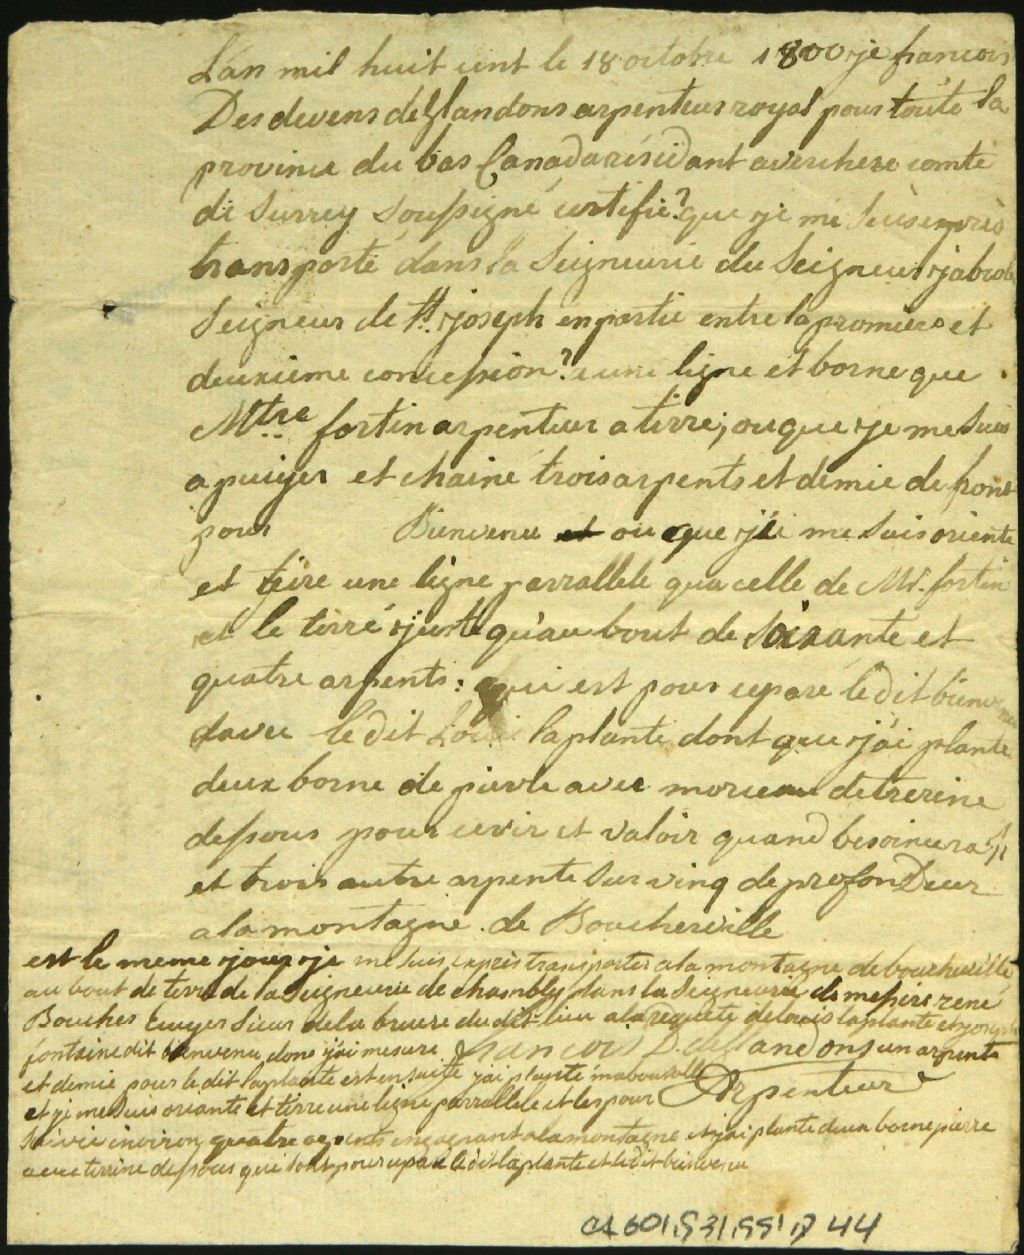 L'an mil huit cent le 18 octobre 1800 je francois
Desdevens de glandons arpenteur royal pour toute la
province du bas Canada résidant a verchere comté
de Surrey Soussigné certifie? que je me suis exprès
transporté dans la Seigneurie du Seigneur
Seigneur de st joseph en partie entre la promiere et
deuxieme concession? a une ligne et borne que
Mtre fortin arpenteur a tirre; ou que je me suis
apuiyer et chainé trois arpents et demie de front
pour Bienvenu et ou que jéi me suis orienté
et tire une ligne parrallele qua celle de Mr. fortin
et le tirré juste qu'au bout de soixante et
quatre arpents: qui est pour cepare le dit bienvenu
davec le dit Loui laplante dont que j'ai planté
deux borne de pierle avec morceau de trerine
dessous pour cervir et valoir quand besoin cera
et trois autre arpente sur vinq de profondeur
a la montagne de Boucherville
est le meme jour je me suis exprès transporter a la montagne de boucherville
au bout de terre de la Seigneurie de chambly dans la Seigneurie de messire rené
Boucher Sieur de la bruere du dit lieu a la requete de louis laplante et
fontaine dit bienvenu donc j'ai mesuré francois D. deglandons un arpente
et demie pour le dit laplante est ensuite j'ai planté ma bousolle Arpenteur
et je me suis orianté et tirre une ligne parrallele et les pour
suivie environ quatre arpents en gagnant a la montagne et j'ai planté deux borne pierre
avec terrine dessous qui sont pour cepare le dit laplante et le dit bienvenu
CA 601,S31,SS1,D 44